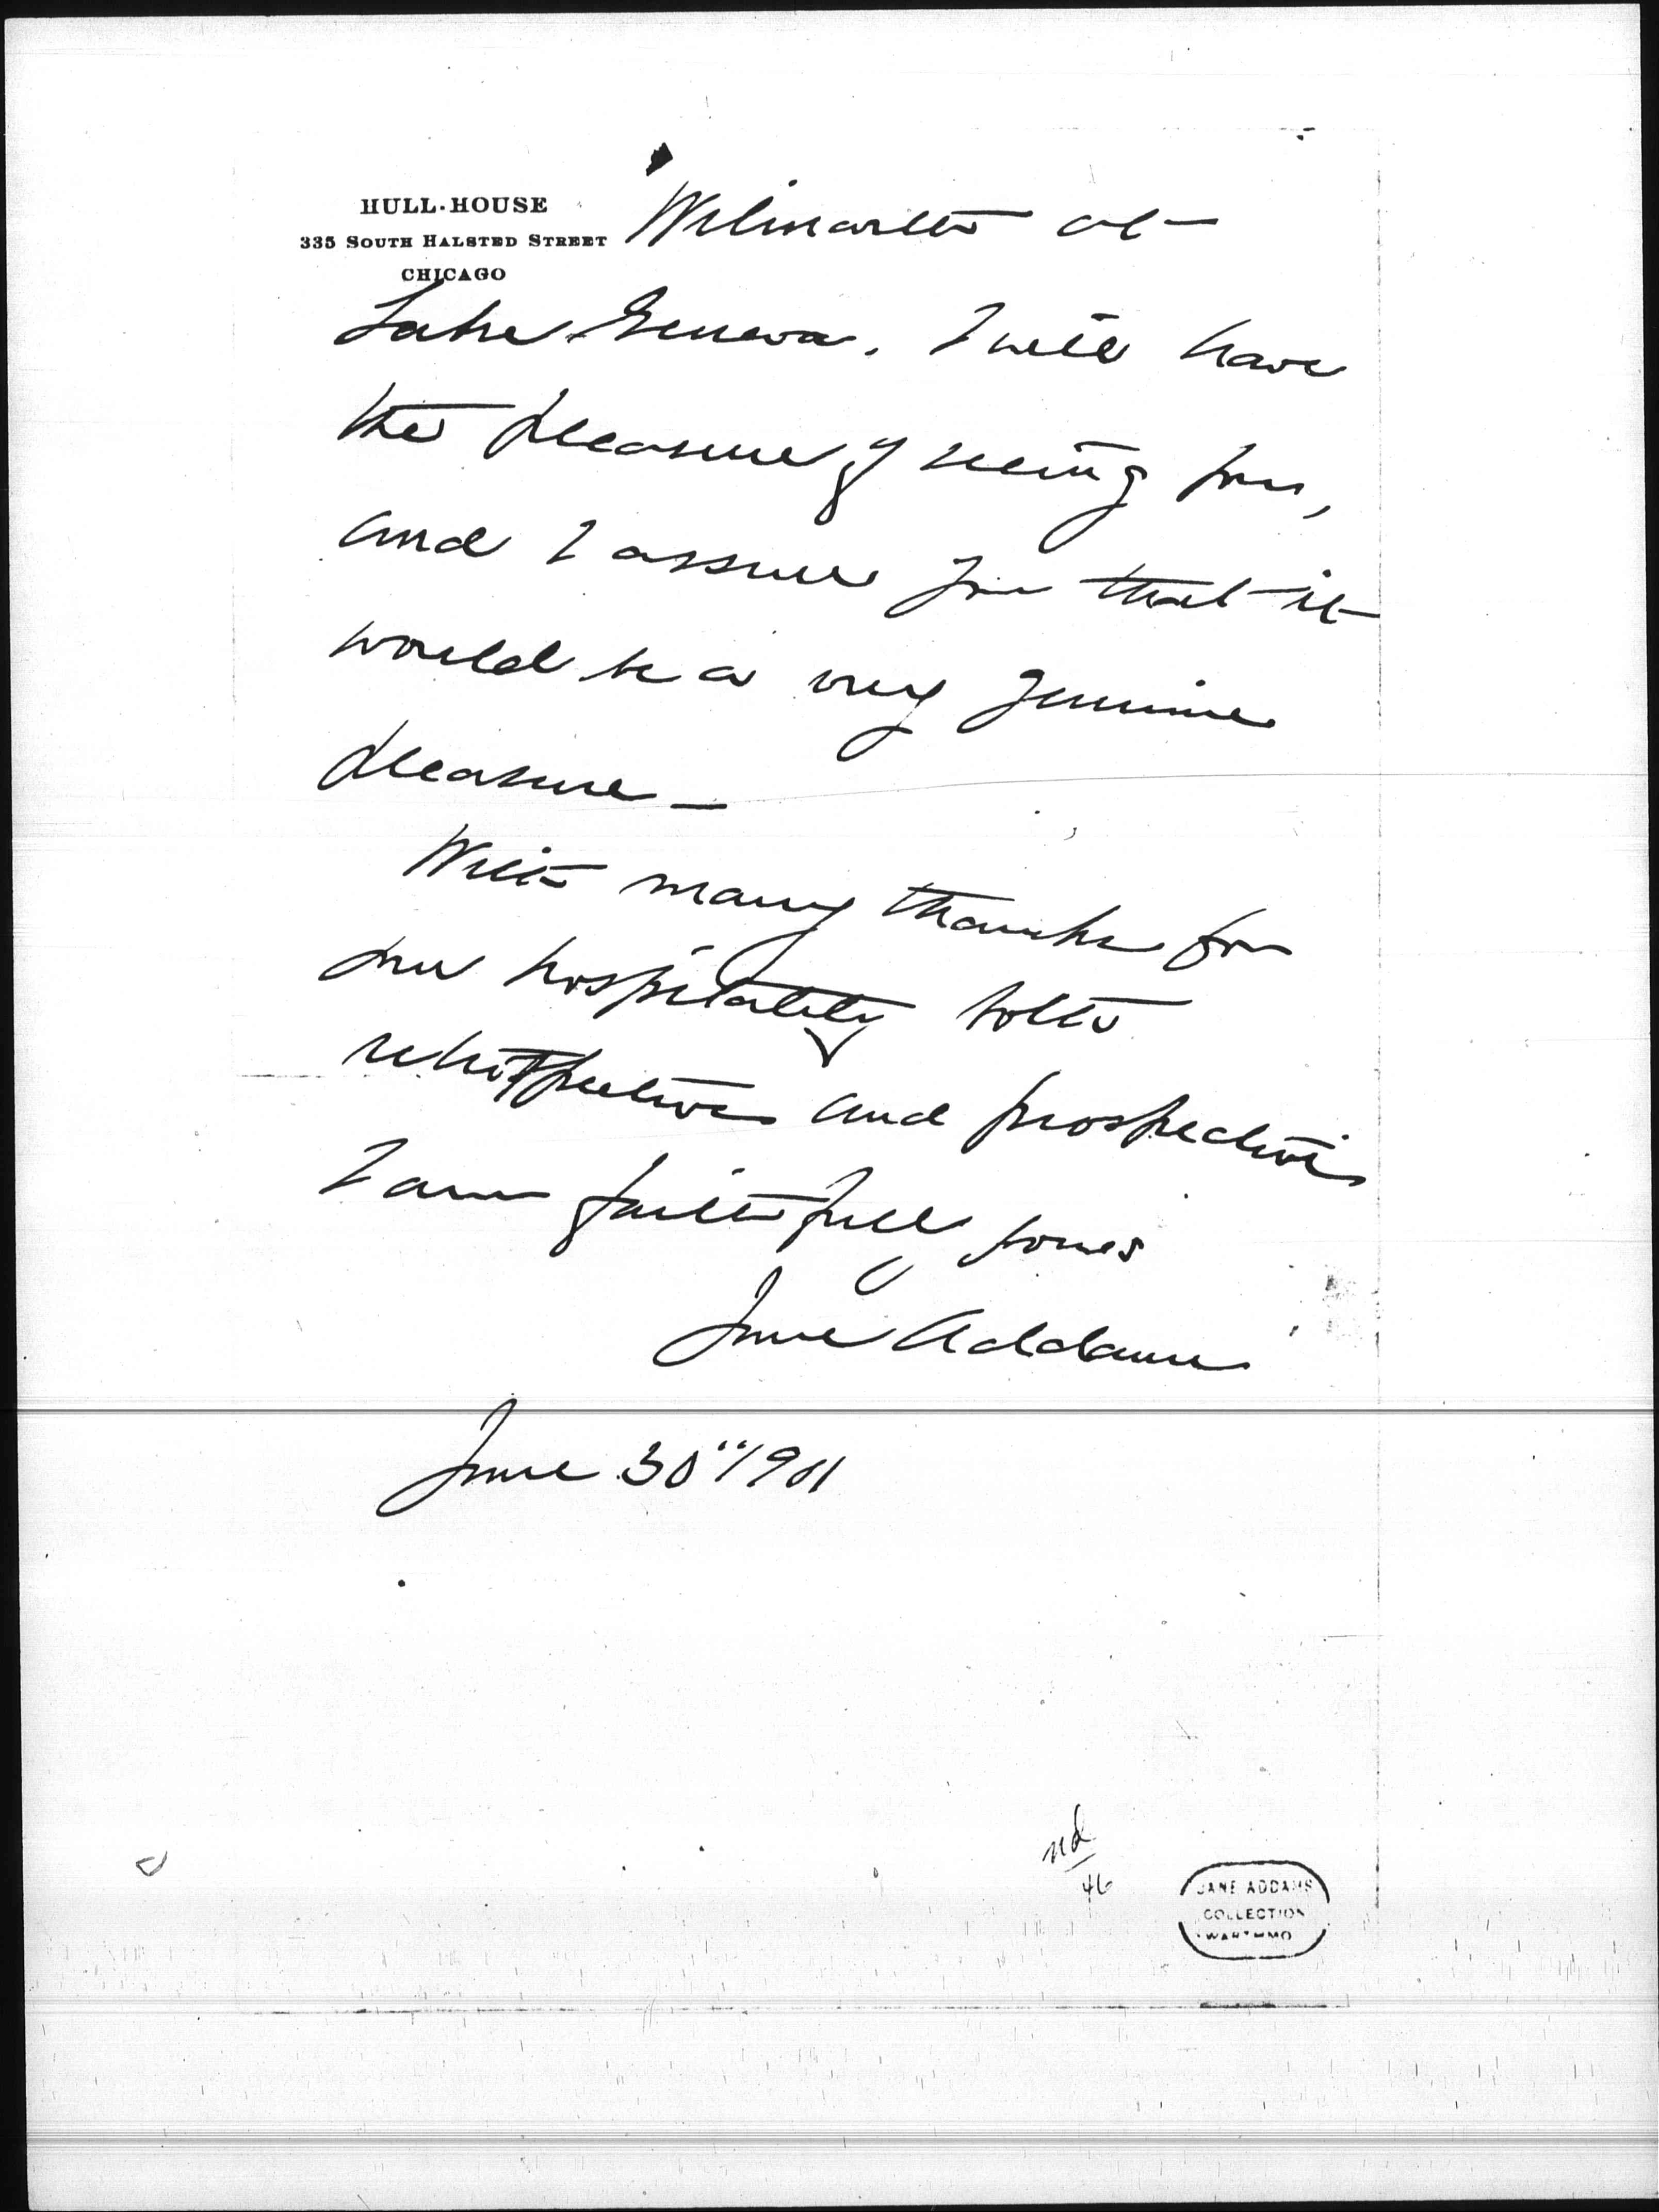 HULL-HOUSE
335 SOUTH HALSTED STREET
CHICAGO
Wilmarth at
Lake Geneva. I will have
the pleasure of seeing you,
and I assure you that it
would be a very genuine
pleasure —
With many thanks for
your hospitality both
retrospective and prospective
I am faithfully yours
Jane Addams
June 30" 1901
nd
46
JANE ADDAMS
COLLECTION
WARTHMO